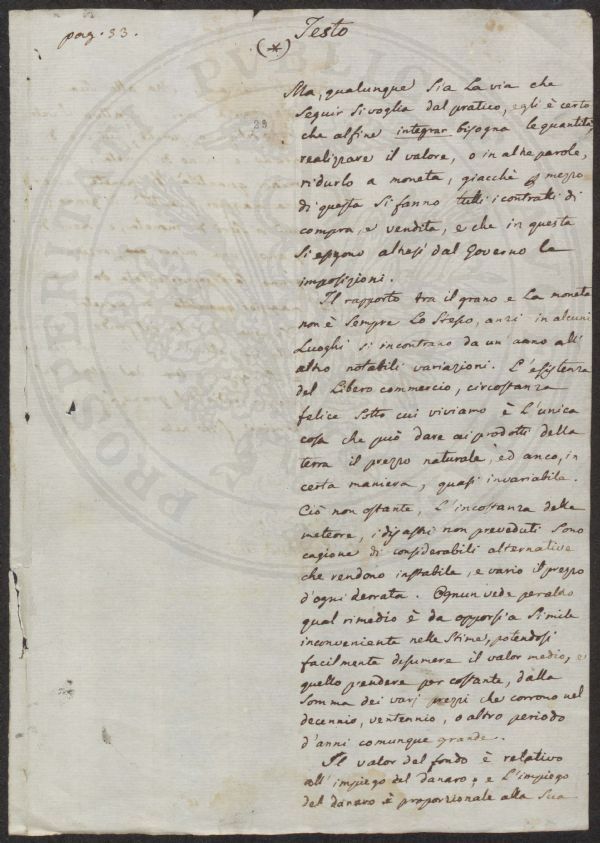 pag. 33.
Testo
(*)
29
Ma, qualunque sia la via che
seguir si voglia dal pratico, egli è certo
che al fine integrar bisogna le quantità,
realizzare il valore, o in altre parole,
ridurlo a moneta, giacchè p mezzo
di questa si fanno tutti i contratti di
compra, e vendita, e che in questa
si espgono altresì dal Governo le
imposizioni.
Il rapporto tra il grano e la moneta
non è sempre lo stesso, anzi in alcuni
Luoghi si incontrano da un' anno all'
altro notabili variazioni. L'esistenza
del libero commercio, circostanza
felice sotto cui viviamo è l'unica
cosa che può dare ai prodotti della
terra il prezzo naturale, ed anco, in
certa maniera, quasi invariabile.
Ciò non ostante, L'incostanza delle
meteore, i disastri non preveduti sono
cagione di considerabili alternative
che rendono instabile, e vario il prezzo
d'ogni derrata. Ognun vede per altro
qual rimedio è da opporsi a simile
inconveniente nelle stime, potendosi
facilmente desumere il valor medio, e
quello prendere per costante, dalla
somma dei varj prezzi che corrono nel
decennio, ventennio, o altro periodo
d'anni comunque grande.
Il valor del fondo è relativo
all' impiego del danaro; e l'impiego
del danaro è proporzionale alla sua
PROSPERITATI PVBLIC